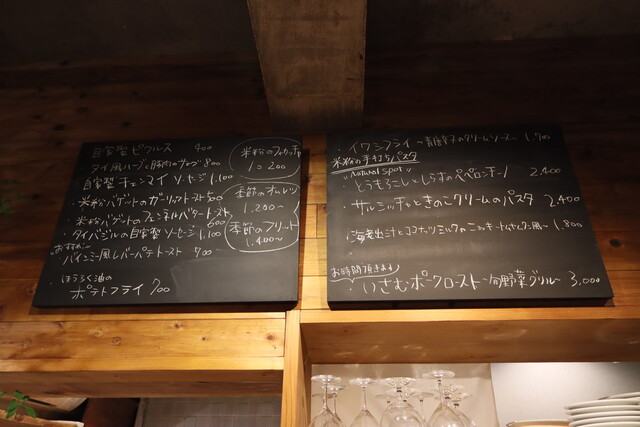 自家製ピクルス 400
タイ風ハーブと豚肉のサラダ 800
自家製チェンマイソーセージ 1,100
・米粉バゲットのガーリックトースト 500
・米粉バゲットのフェンネルバタートースト 600
・タイバジルの自家製ソーセージ 1,100
おすすめ
・バインミー風レバーパテトースト 900
・ほうろく油の
ポテトフライ 700
米粉のフォカッチャ
1コ 200
季節のオムレツ
1,200〜
季節のフリット
1,400〜
・イワシフライ 〜青唐辛子のクリームソース〜 1,700
米粉の手打ちパスタ
Natural Spot
・とうもろこしとしらすのペペロンチーノ 2,400
・サルシッチャときのこクリームのパスタ 2,400
・海老出汁とココナッツミルクのニョッキ 〜トムヤムクン風〜 1,800
お時間頂きます
・いさむポークロースト 〜旬野菜グリル〜 3,000